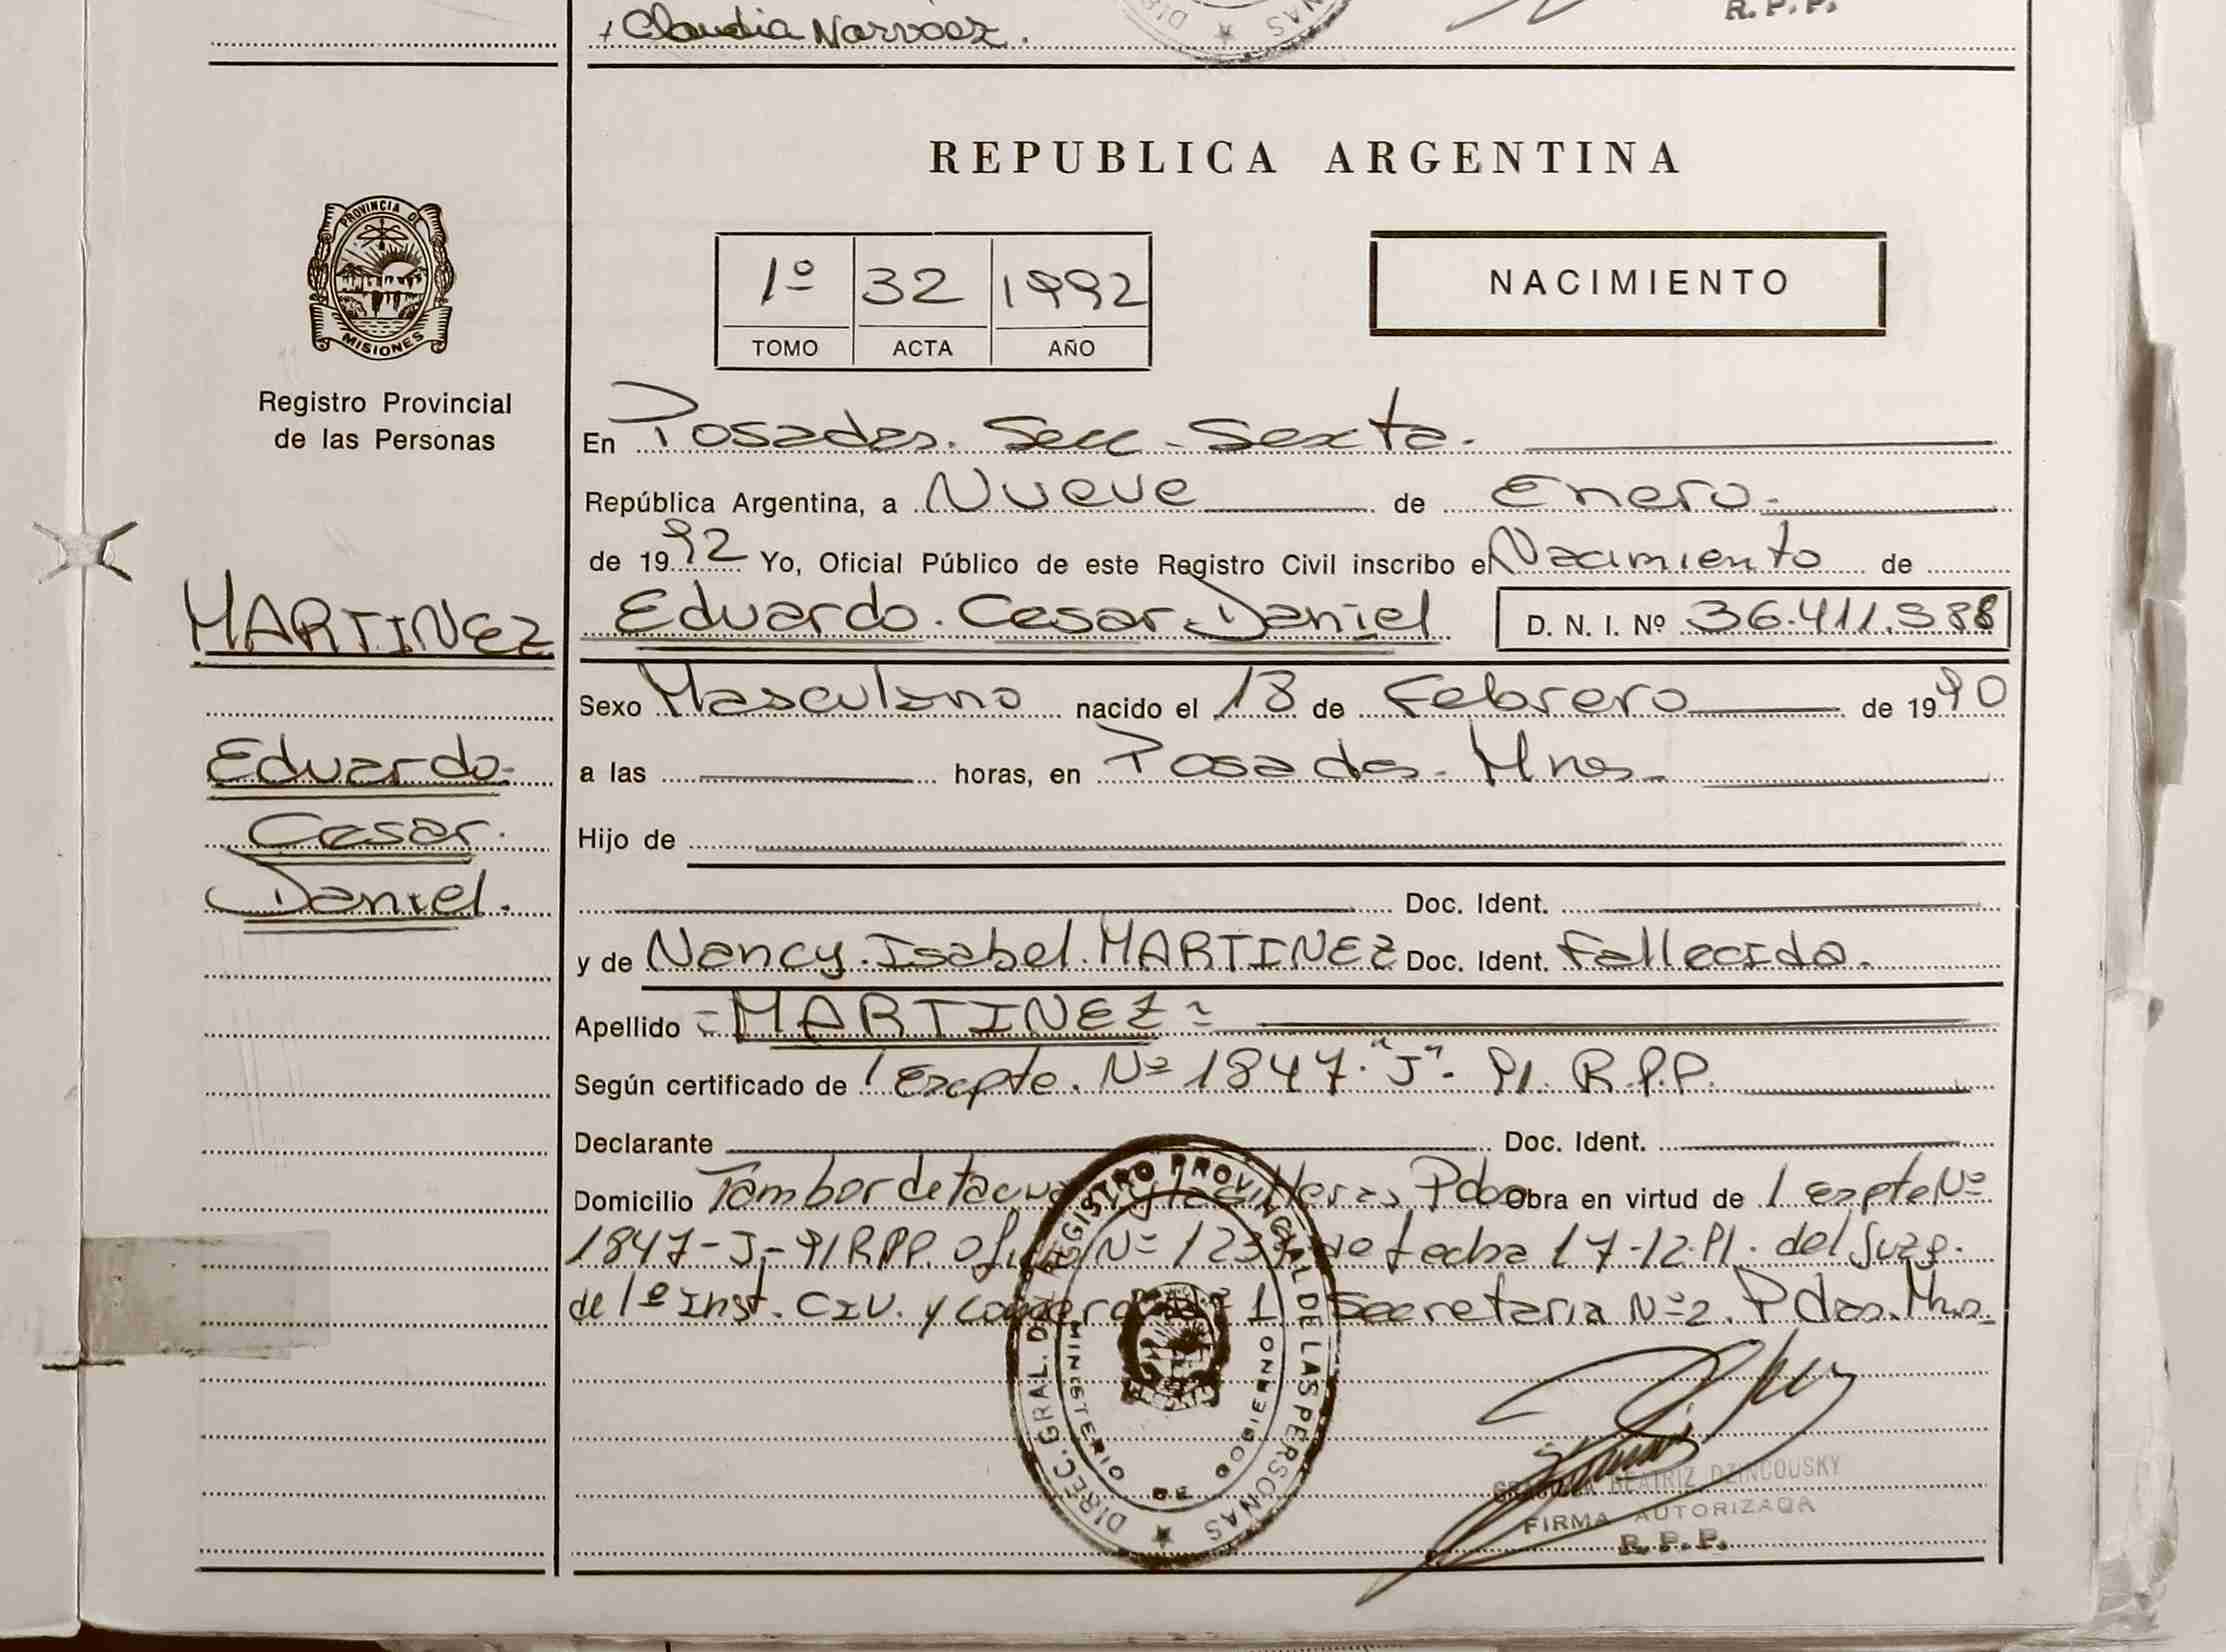 Claudia Narvaez.
R.P.P.
REPUBLICA ARGENTINA
PROVINCIA DE
MISIONES
Registro Provincial
de las Personas
1º 32 1992
TOMO ACTA AÑO
NACIMIENTO
En Posadas. Secc. Sexta.
República Argentina, a Nueve de Enero.
de 1992 Yo, Oficial Público de este Registro Civil inscribo el Nacimiento de
MARTINEZ
Eduardo
Cesar.
Daniel.
Eduardo. Cesar. Daniel D. N. I. Nº 36.411.988
Sexo Masculino nacido el 18 de Febrero de 1990
a las horas, en Posadas. Mnes.
Hijo de
Doc. Ident.
y de Nancy. Isabel. MARTINEZ Doc. Ident. Fallecida.
Apellido =MARTINEZ=
Según certificado de 1 Expte. Nº 1847. "J". 91. R.P.P.
Declarante Doc. Ident.
Domicilio Tambor de Heras, Pdas Obra en virtud de 1 expte Nº
1847-J-91 RPP. Nº de fecha 17-12-91. del Juzg.
de 1º Inst. Civ. y 1 Secretaria Nº2. Pdas. Mns.
DIREC. GRAL. DEL REGISTRO PROVINCIAL DE LAS PERSONAS
MINISTERIO DE GOBIERNO
BEATRIZ DZINCOUSKY
FIRMA AUTORIZADA
R.P.P.